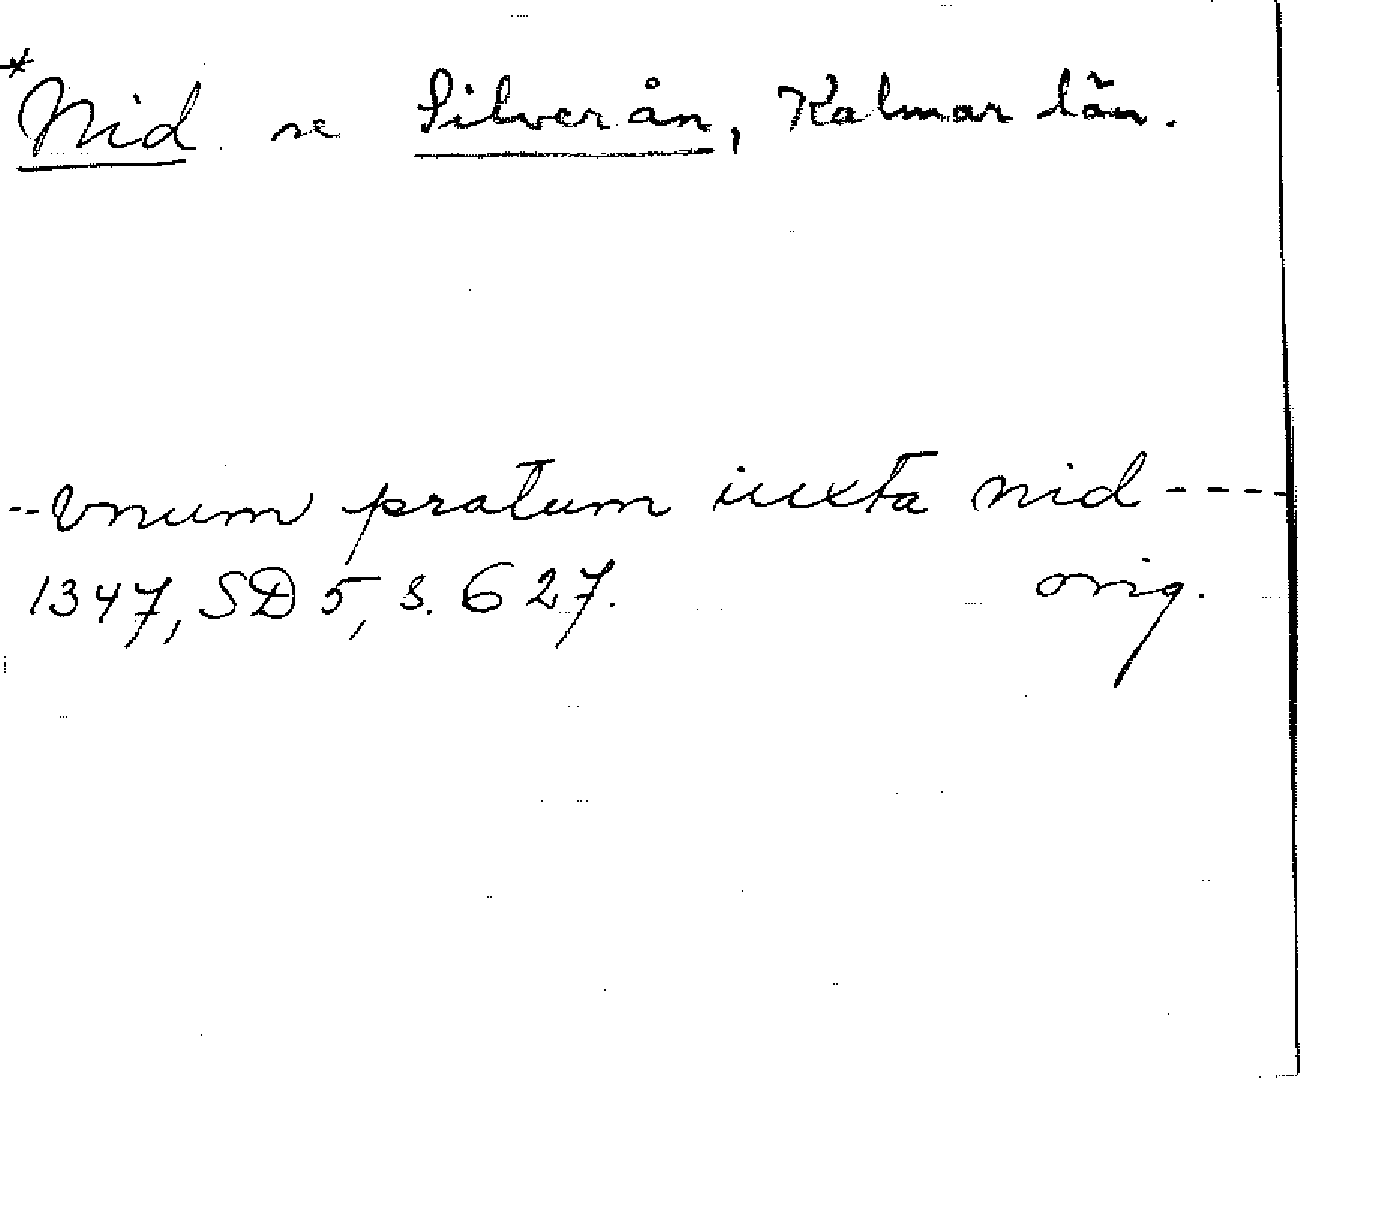 *Nid se Silverån, Kalmar län.
--Vnum pratum iuxta nid----
1347, SD 5, s. 627. orig.